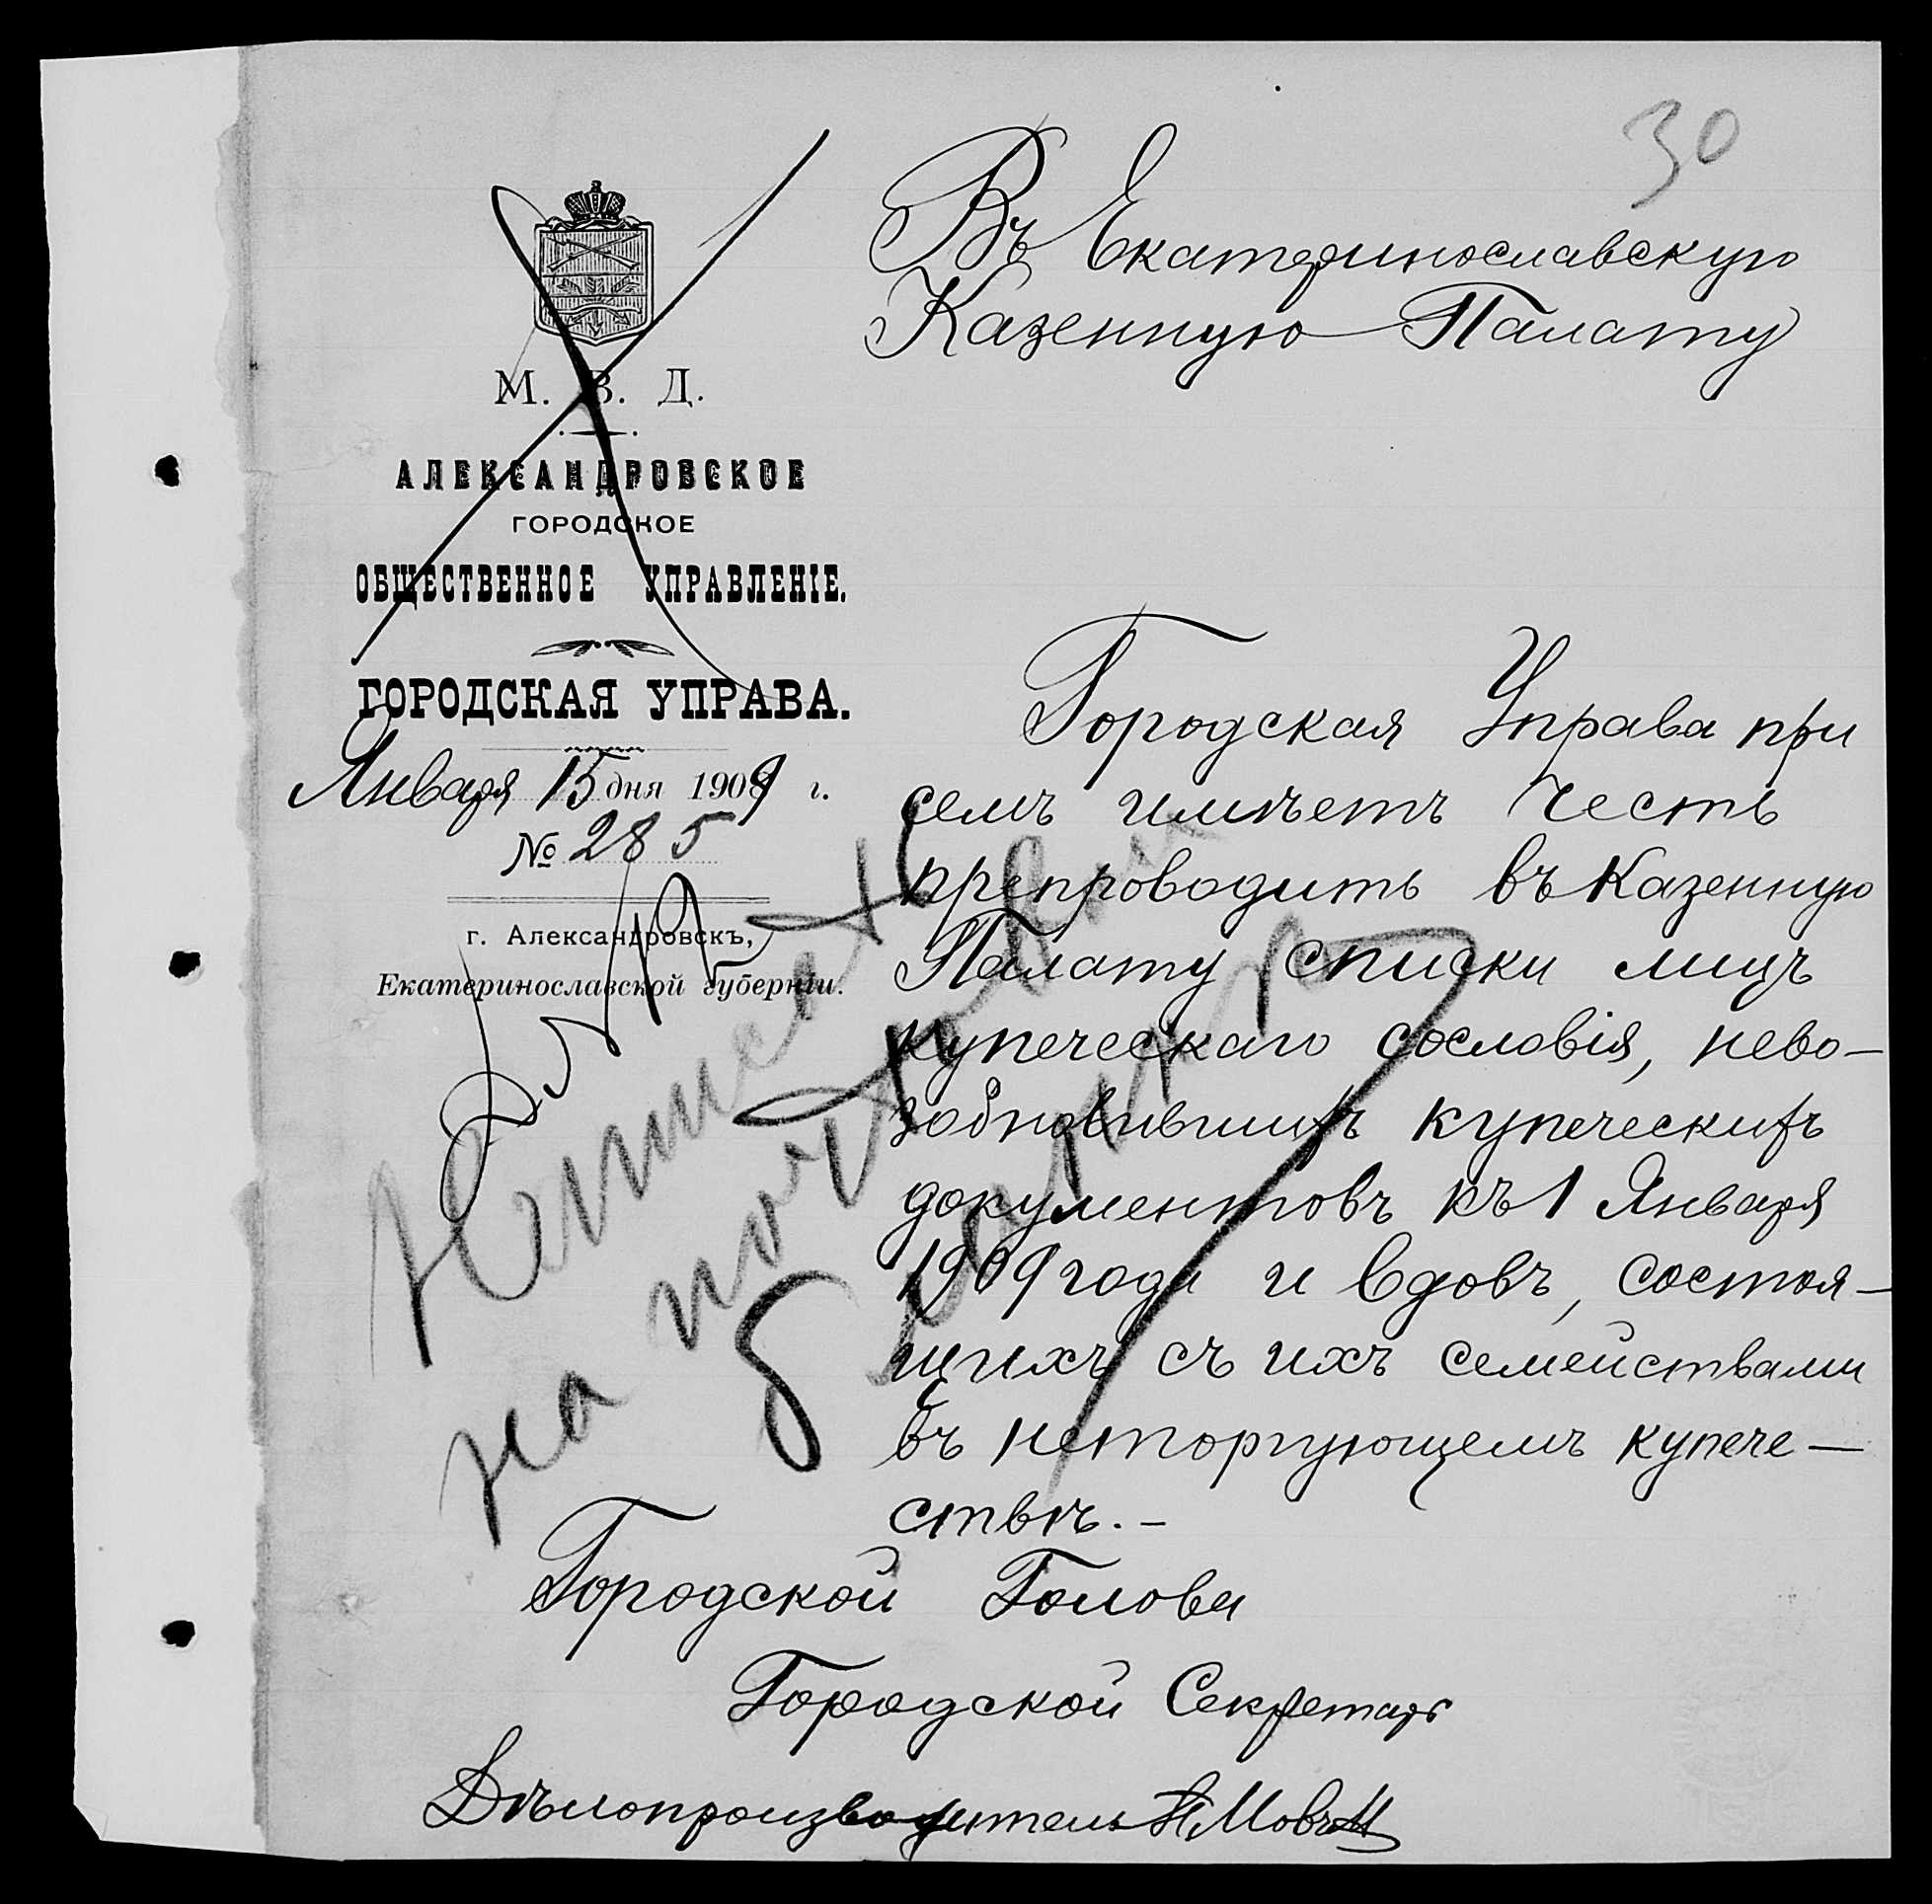 30
Въ Екатеринославскую
Казенную Палату
М. В. Д.
АЛЕКСАНДРОВСКОЕ
ГОРОДСКОЕ
ОБЩЕСТВЕННОЕ УПРАВЛЕНІЕ.
ГОРОДСКАЯ УПРАВА.
Января 15 дня 1909 г.
№ 285
г. Александровскъ,
Екатеринославской губерніи.
Городская Управа при
семъ имѣетъ честь
препроводить въ Казенную
Палату списки лицъ
купеческаго сословія, нево-
зобновившихъ купеческихъ
документовъ къ 1 Января
1909 года и вдовъ, состоя-
щихъ съ ихъ семействами
въ неторгующемъ купече-
ствѣ.-
Городской Голова
Городской Секретарь
Дѣлопроизводитель